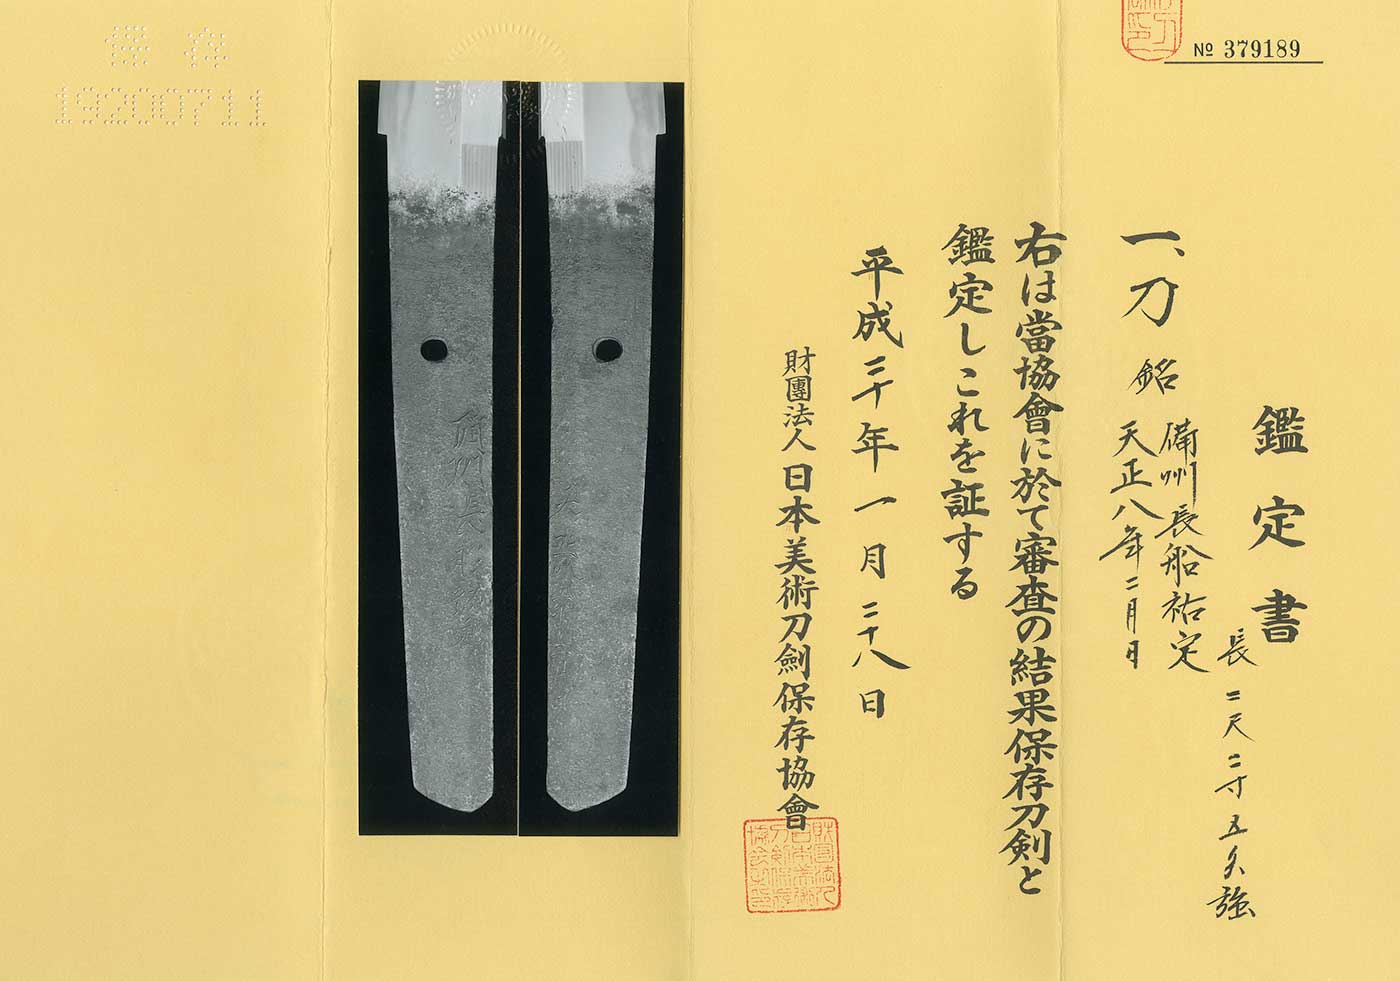 No 379189
鑑定書
一、刀 銘 備州長船祐定
天正八年二月日
長二尺二寸五分強
右は當協會に於て審査の結果保存刀剣と
鑑定しこれを証する
平成二十年一月二十八日
財團法人日本美術刀劍保存協會
保存
19200711